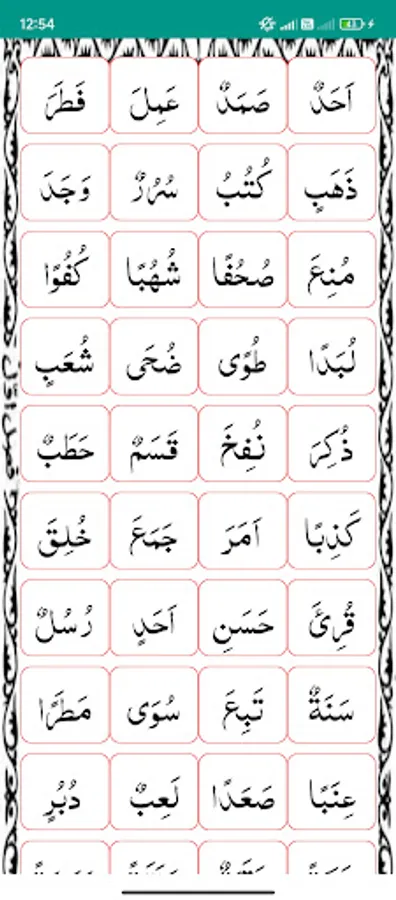 12:54
اَحَدٌ صَمَدٌ عَمِلَ فَطَرَ
ذَهَبٍ كُتُبُ سُرُرٌ وَجَدَ
مُنِعَ صُحُفًا شُهُبًا كُفُوًا
لُبَدًا طُوًى ضُحًى شُعَبٍ
ذُكِرَ نُفِخَ قَسَمٌ حَطَبٌ
كَذِبًا اَمَرَ جَمَعَ خُلِقَ
قُرِئَ حَسَنٍ اَحَدٍ رُسُلٌ
سَنَةٌ تَبِعَ سُوًى مَطَرًا
عِنَبًا صَعَدًا لَعِبٌ دُبُرٍ